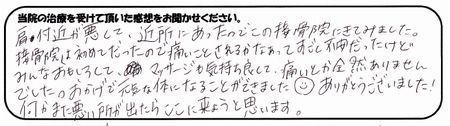 当院の治療を受けて頂いた感想をお聞かせください。
肩付近が悪くて、近所にあったのでこの接骨院にきてみました。
接骨院は初めてだったので痛いことされるかなぁってすごく不安だったけど
みんなおもしろくて、マッサージも気持ち良くて、痛いとか全然ありません
でした。おかげで元気な体になることができました☺ ありがとうございました!
何かまた悪い所が出たらここに来ようと思います。